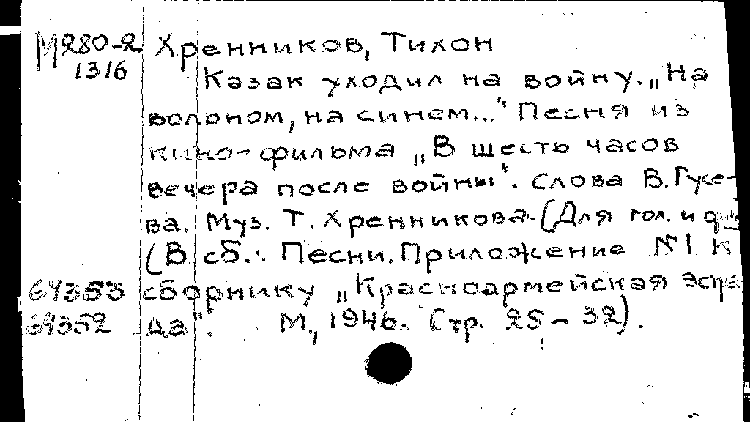 М280-2 Хренников, Тихон
1316
Казак уходил на войну. „На
волоном, на синем..." Песня из
кино-фильма „В шесть часов
вечера после войны". Слова В. Гусе-
ва. Муз. Т. Хренникова. (Для гол. и ф
(В сб.: Песни. Приложение №1 к
64353 сборнику „Красноармейская эстра
64352 да". М., 1946. Стр. 25-32).